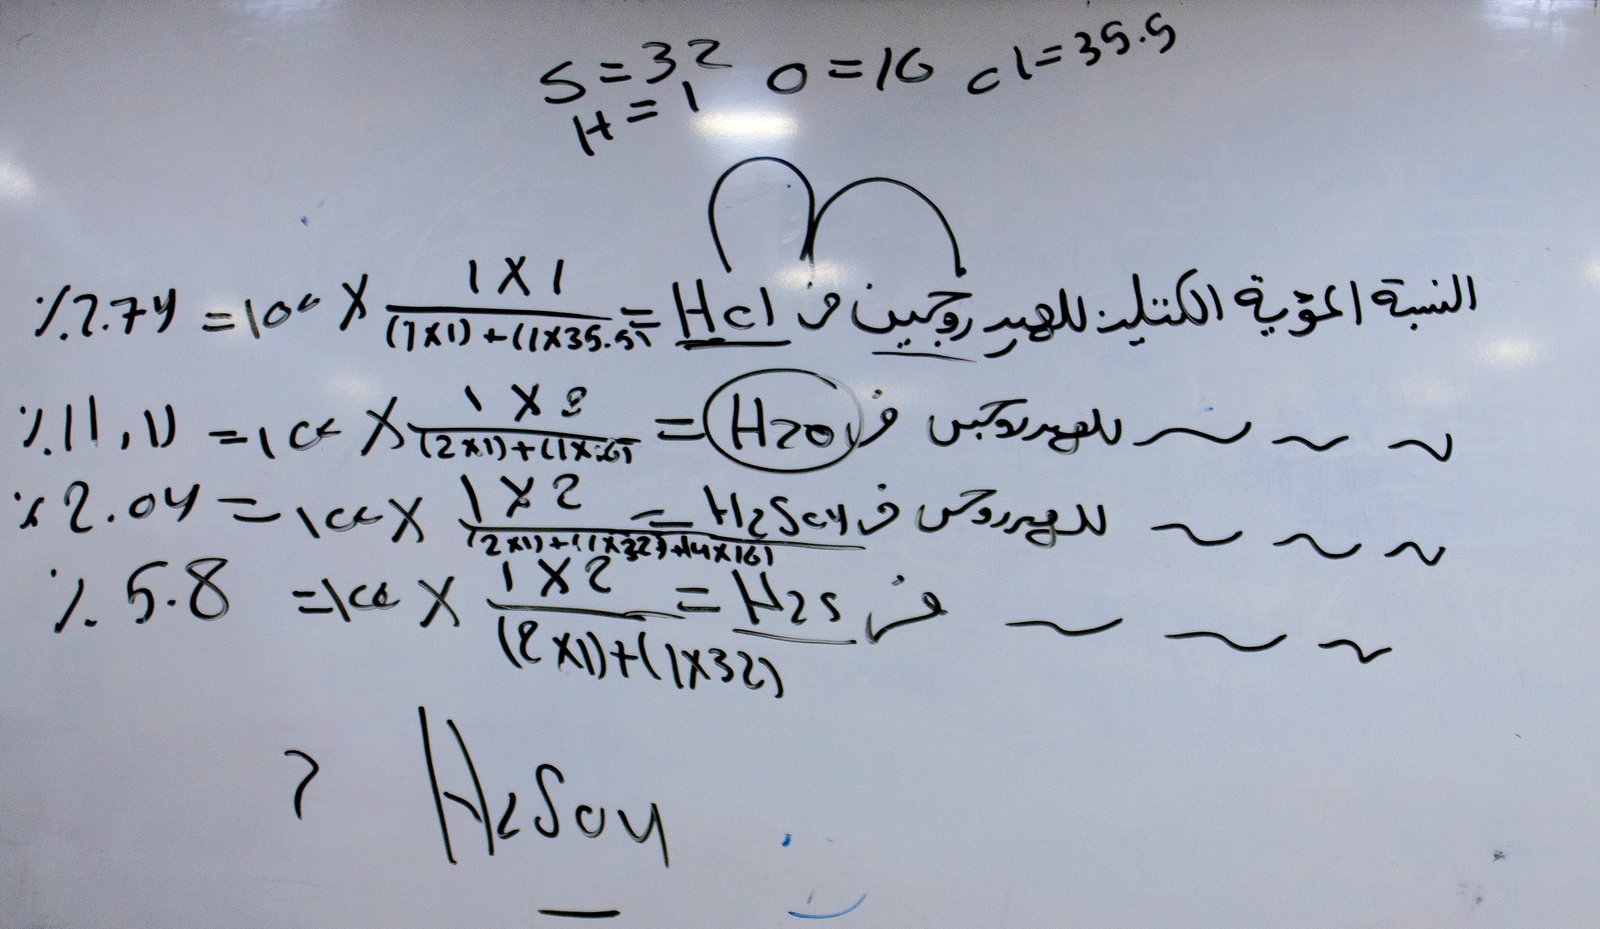 S = 32 O = 16 Cl = 35.5
H = 1
النسبة المئوية الكتلية للهيدروجين في HCl = 1 X 1 / (1 X 1) + (1 X 35.5) X 100 = 2.74 %
~ ~ ~ للهيدروجين في H2O = 1 X 2 / (2 X 1) + (1 X 16) X 100 = 11,11 %
~ ~ ~ للهيدروجين في H2SO4 = 1 X 2 / (2 X 1) + (1 X 32) + (4 X 16) X 100 = 2.04 %
~ ~ ~ في H2S = 1 X 2 / (2 X 1) + (1 X 32) X 100 = 5.8 %
H2SO4 ?